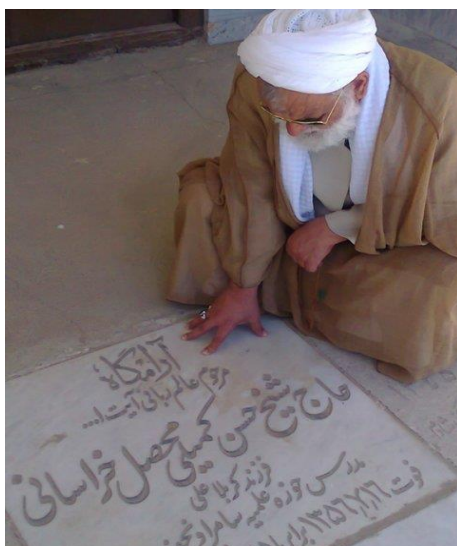 آرامگاه
مرحوم عالم ربانی آیت ا...
حاج شیخ حسن کمیلی محصل خراسانی
فرزند کربلا علی
مدرس حوزه علمیه سامرا و نجف
فوت ۱۳۵۶/۷/۱۶ برابر